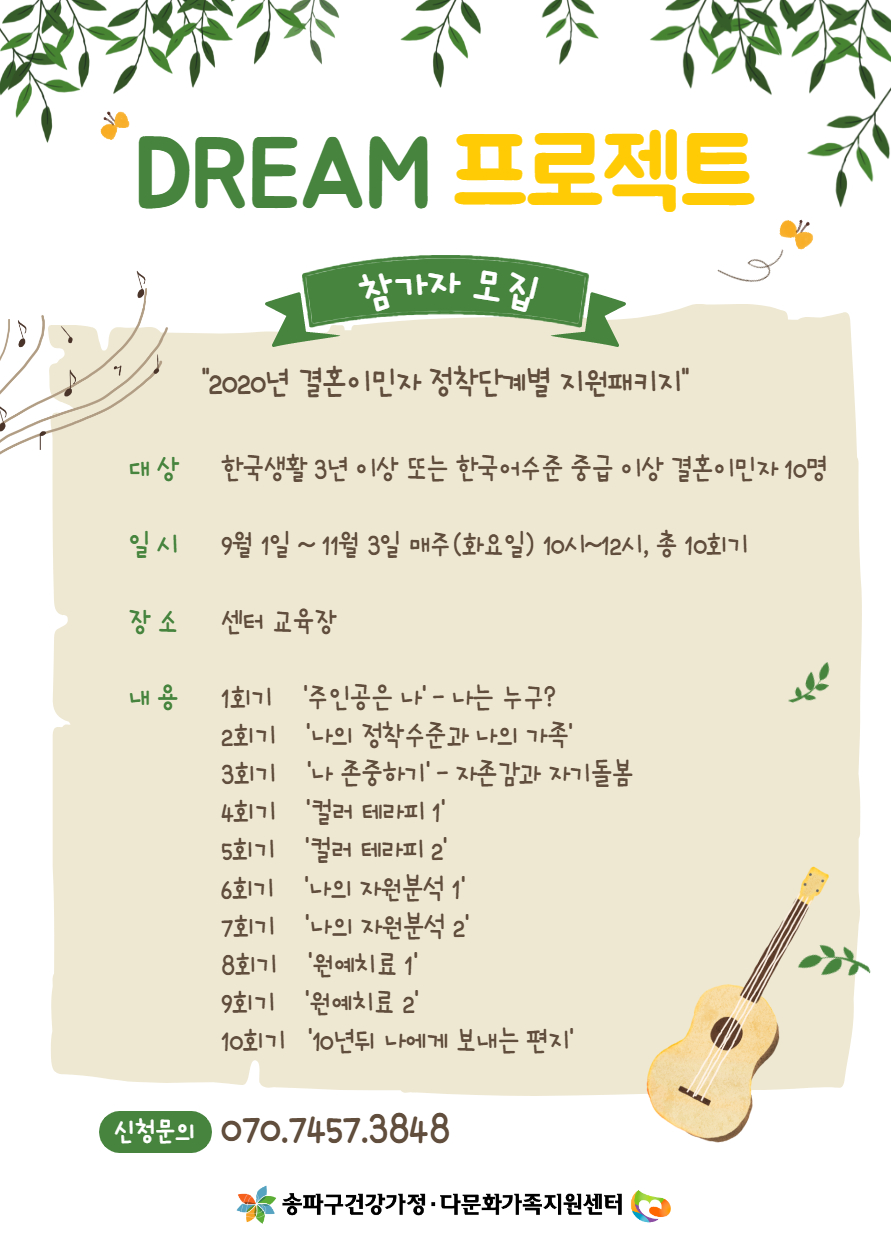 DREAM 프로젝트
참가자 모집
"2020년 결혼이민자 정착단계별 지원패키지"
대상 한국생활 3년 이상 또는 한국어수준 중급 이상 결혼이민자 10명
일시 9월 1일 ~ 11월 3일 매주(화요일) 10시~12시, 총 10회기
장소 센터 교육장
내용 1회기 '주인공은 나' - 나는 누구?
2회기 '나의 정착수준과 나의 가족'
3회기 '나 존중하기' - 자존감과 자기돌봄
4회기 '컬러 테라피 1'
5회기 '컬러 테라피 2'
6회기 '나의 자원분석 1'
7회기 '나의 자원분석 2'
8회기 '원예치료 1'
9회기 '원예치료 2'
10회기 '10년뒤 나에게 보내는 편지'
신청문의 070.7457.3848
송파구건강가정·다문화가족지원센터